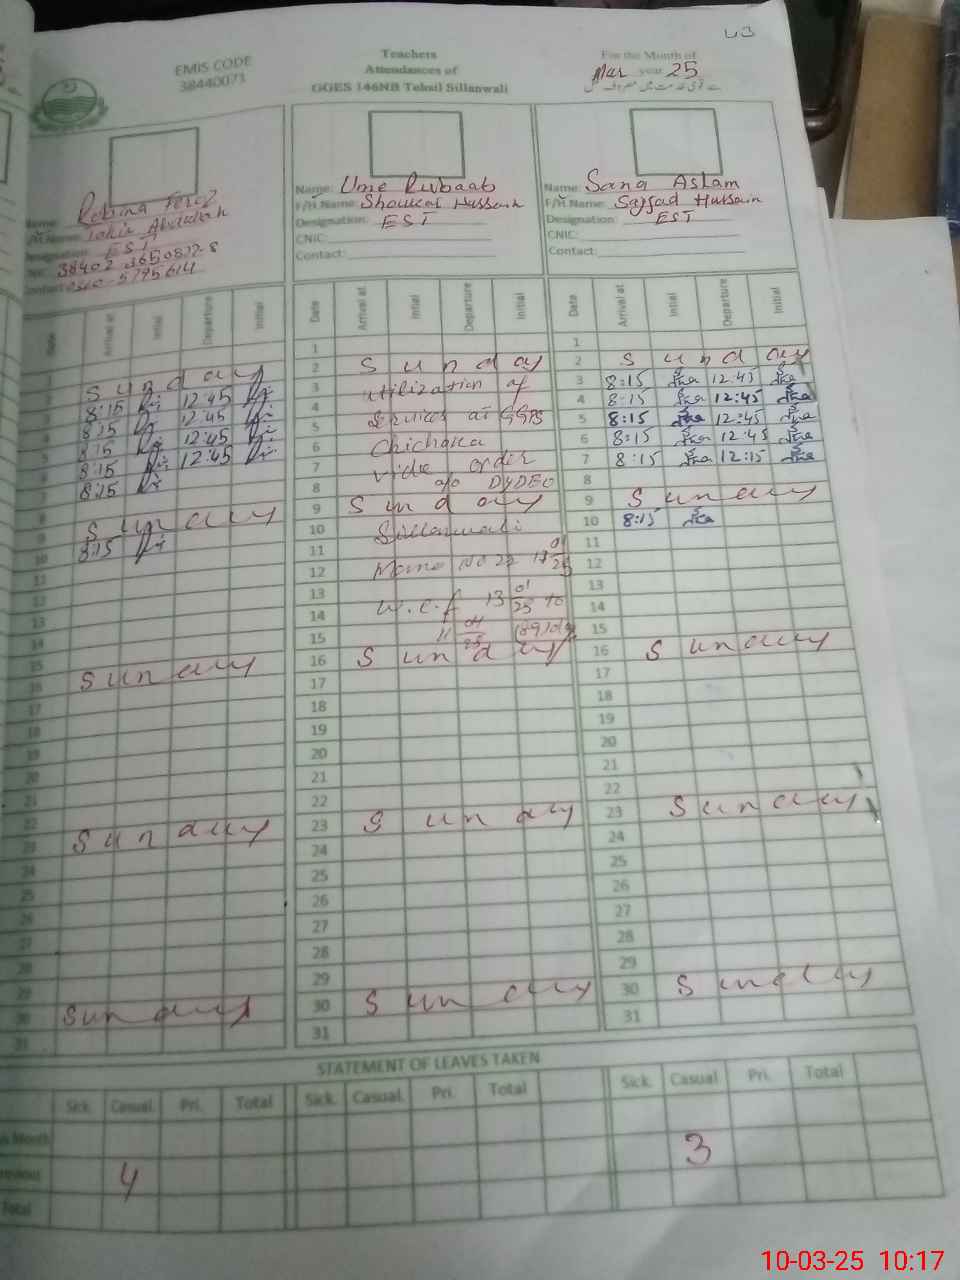 43
EMIS CODE
38440071
Teachers
Attendances of
GGES 146NB Tehsil Sillanwali
For the Month of
Mar year 25
Name: Robina Feroz
F/H Name: Tahir Abdullah
Designation: EST
Name: Ume Rubaab
F/H Name: Shoukat Hussain
Designation: EST
CNIC:
Contact:
Name: Sana Aslam
F/H Name: Sajjad Hussain
Designation: EST
CNIC:
Contact:
Date Arrival at Initial Departure Initial
1
2 Sunday
3 8:15 12:45
4 8:15 12:45
5 8:15 12:45
6 8:15 12:45
7 8:15
8
9 Sunday
10 8:15
11
12
13
14
15
16 Sunday
17
18
19
20
21
22
23 Sunday
24
25
26
27
28
29
30 Sunday
31
Date Arrival at Initial Departure Initial
1
2 Sunday
3 utilization of
4
5 Services at GGPS
6 Chichoka
7 vide order
8 o/o DYDEO
9 Sunday
10 Sillanwali
11
12 Memo No 22 13/01/25
13
14 w.e.f 13 01/25 to
15 11 04/25 (89) day
16 Sunday
17
18
19
20
21
22
23 Sunday
24
25
26
27
28
29
30 Sunday
31
Date Arrival at Initial Departure Initial
1
2 Sunday
3 8:15 ثناء 12:45 ثناء
4 8:15 ثناء 12:45 ثناء
5 8:15 ثناء 12:45 ثناء
6 8:15 ثناء 12:45 ثناء
7 8:15 ثناء 12:15 ثناء
8
9 Sunday
10 8:15 ثناء
11
12
13
14
15
16 Sunday
17
18
19
20
21
22
23 Sunday
24
25
26
27
28
29
30 Sunday
31
STATEMENT OF LEAVES TAKEN
Sick. Casual. Pri. Total Sick. Casual. Pri. Total Sick. Casual Pri. Total
Month
Previous 4 3
Total
10-03-25 10:17